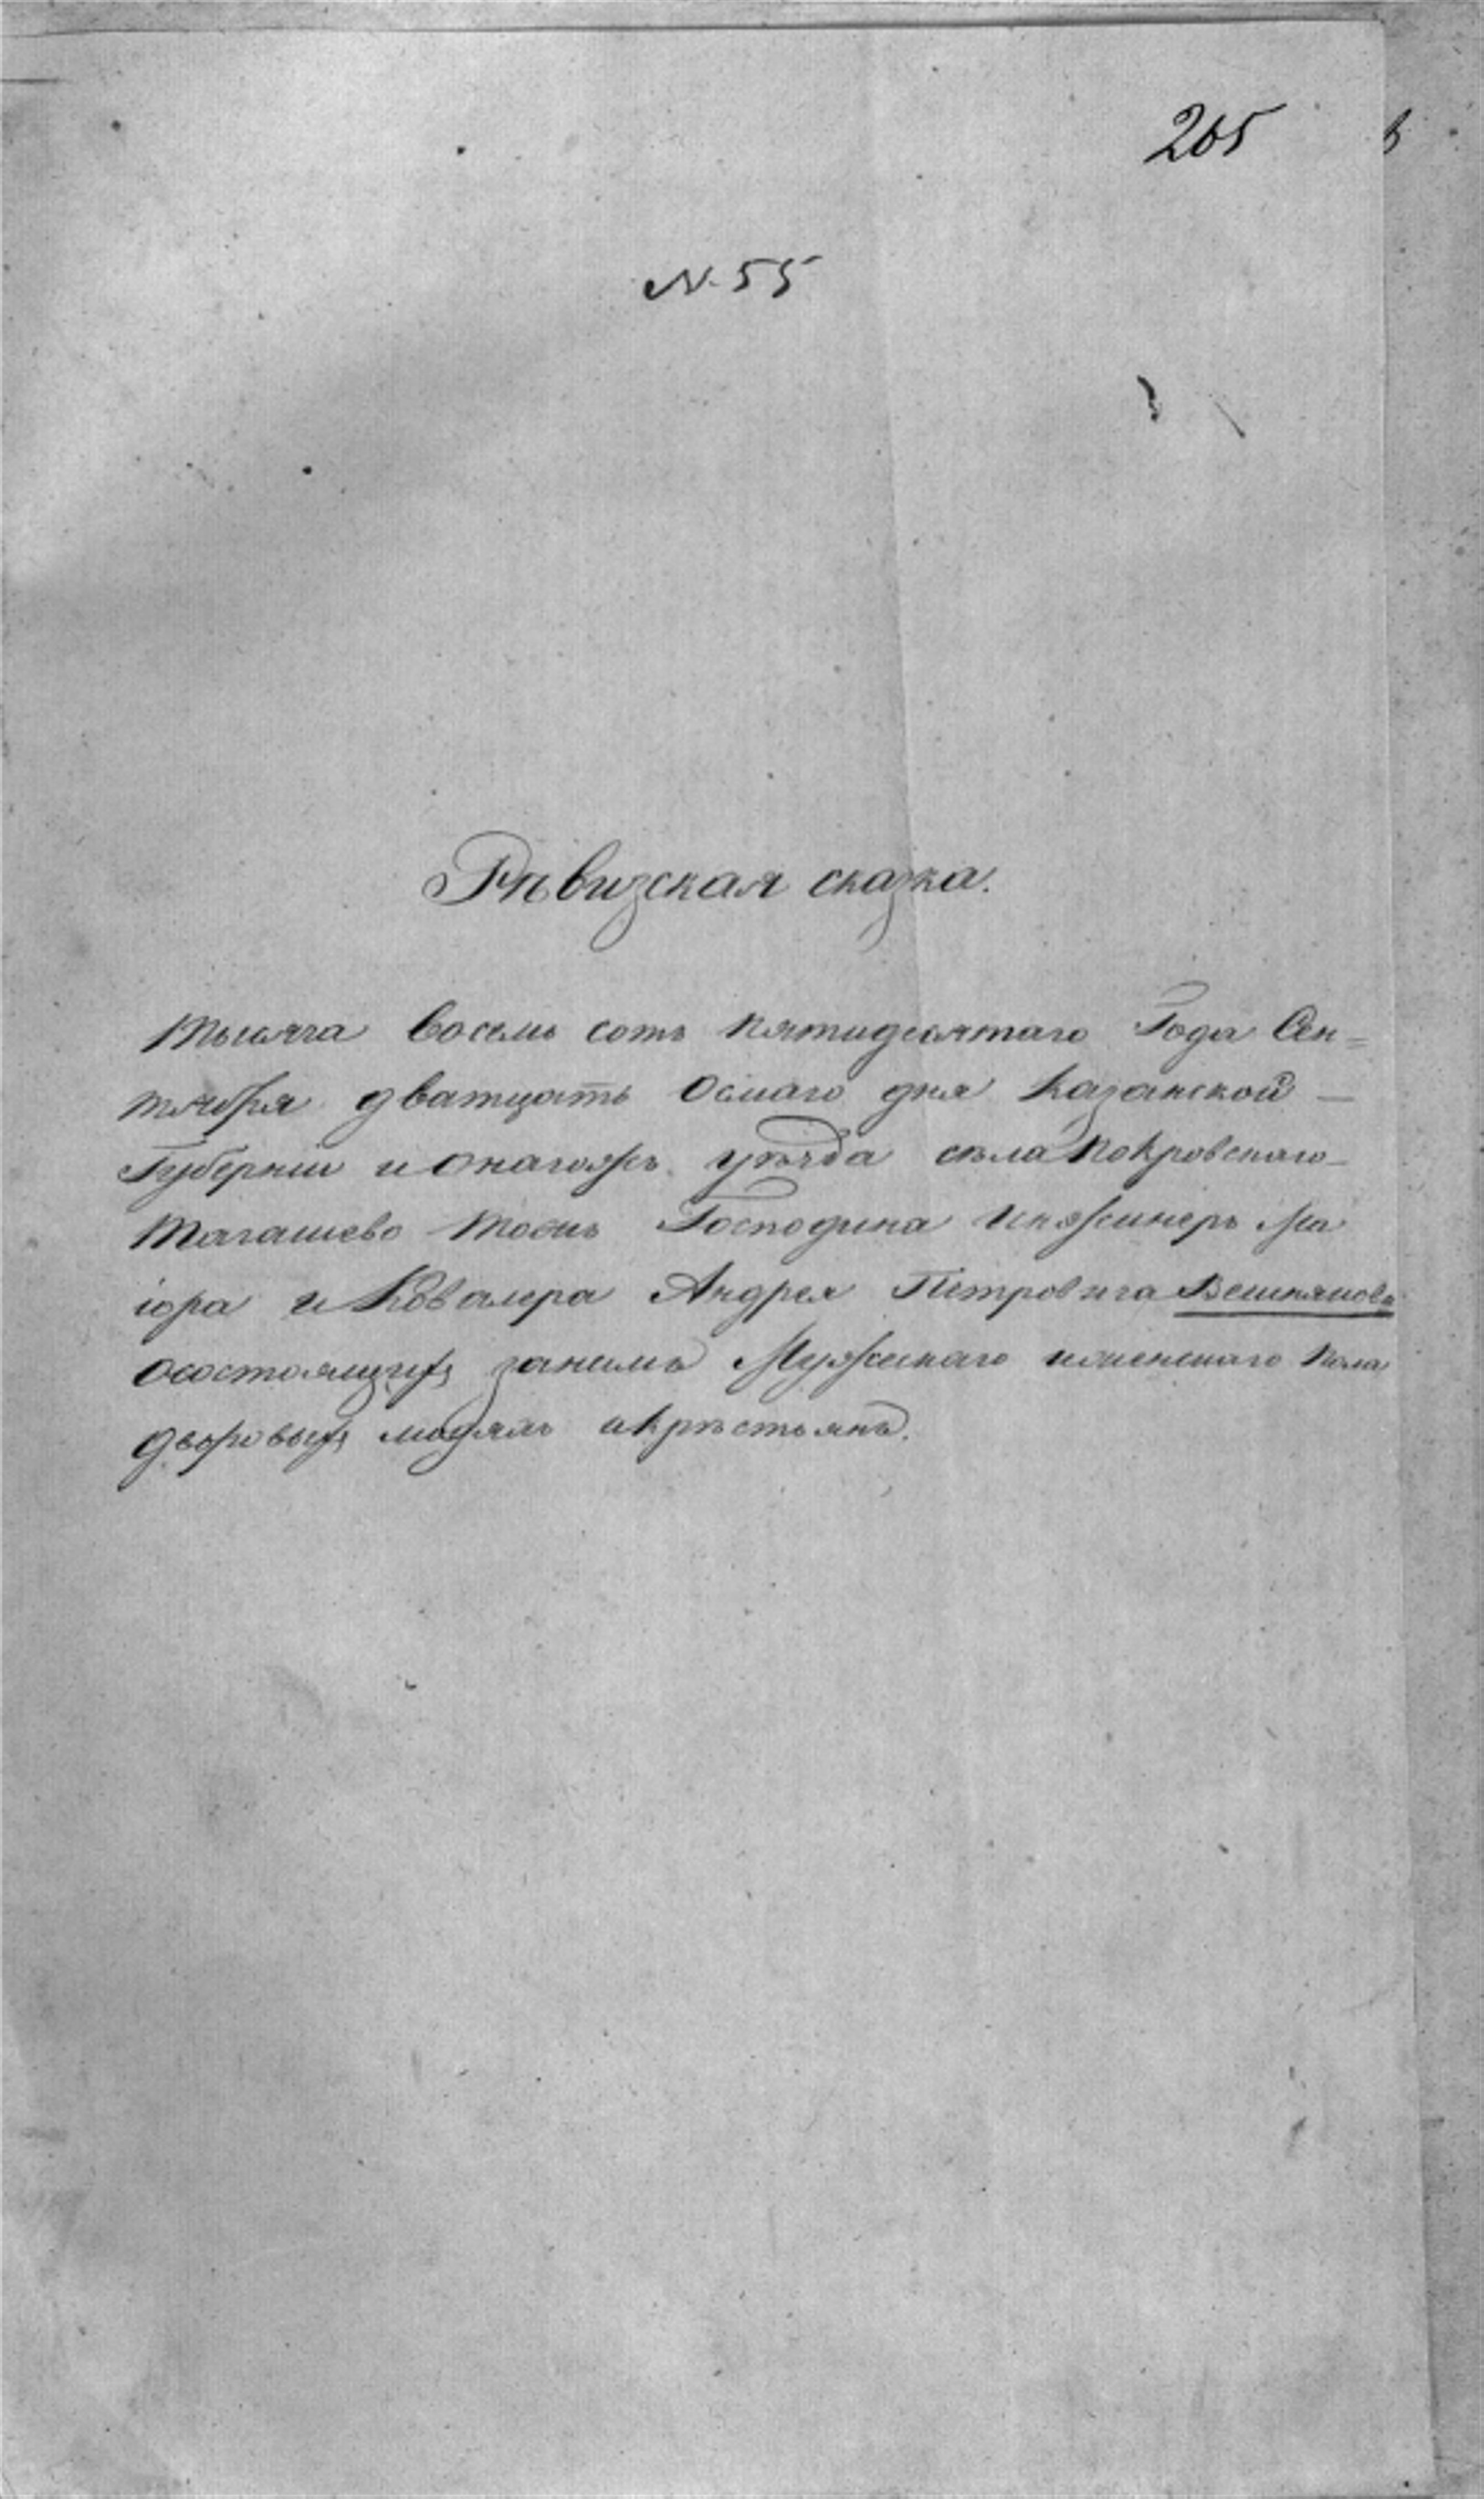 205
N. 55
Рѣвизская сказка.
Тысяча восемь сотъ пятидесятаго Года Сен=
тября дватцать осмаго дня Казанской —
Губерніи и онагожъ уѣзда сѣла Покровскаго —
Тагашево тожъ Господина Инженеръ Ма
іора и Кавалера Андрея Петровича Вешнякова
осостоящихъ занимъ Мужескаго иженскаго пола
дворовыхъ людяхъ икрѣстьянъ.